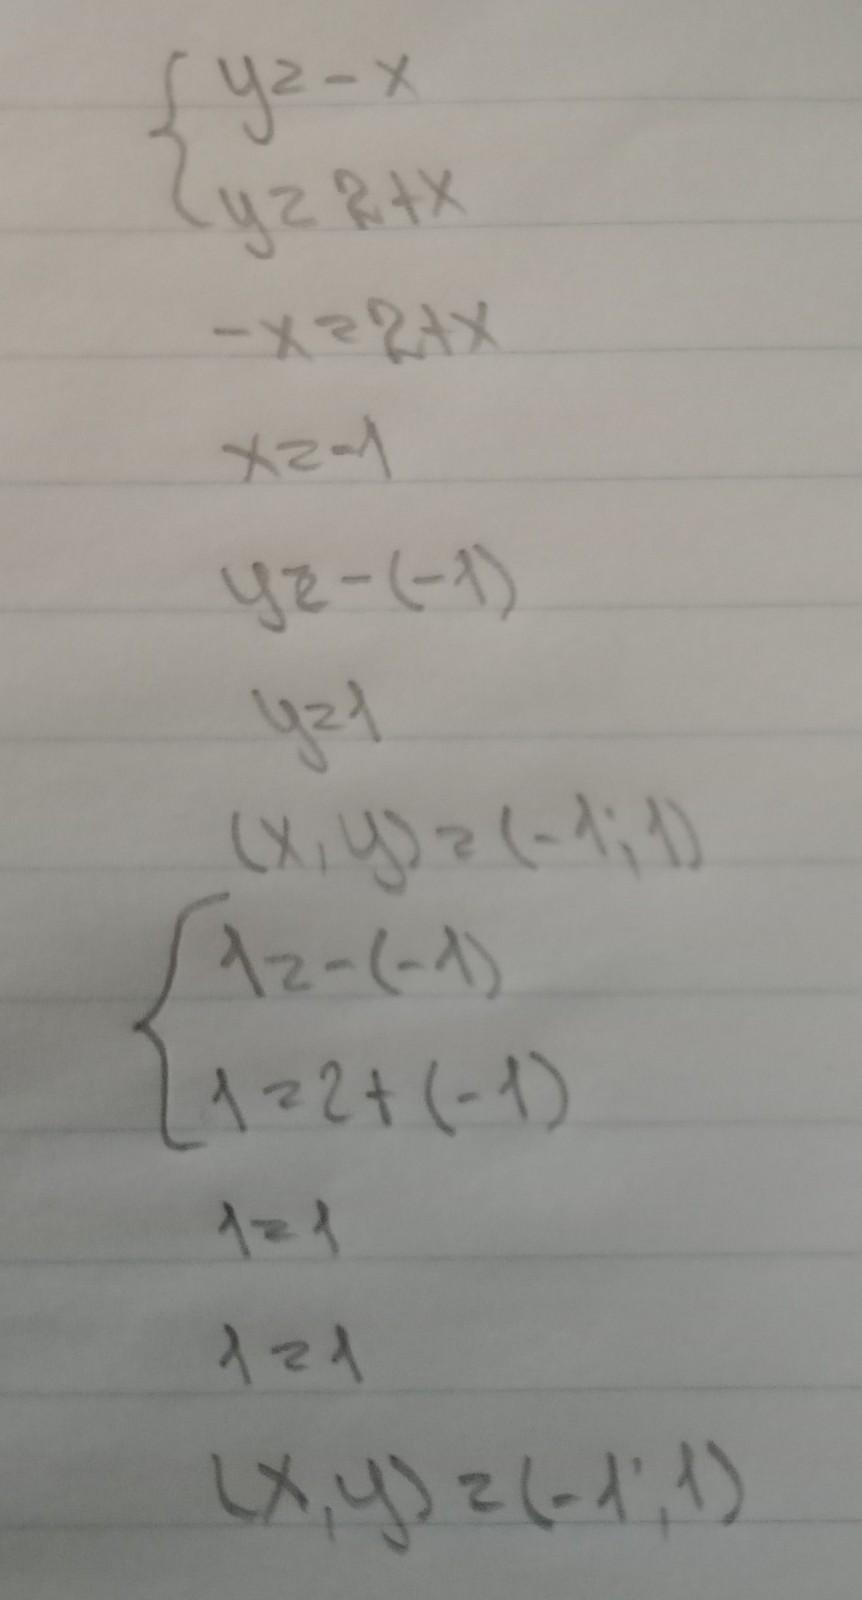 { y = -x
y = 2+x
-x = 2+x
x = -1
y = -(-1)
y = 1
(x, y) = (-1; 1)
{ 1 = -(-1)
1 = 2+(-1)
1 = 1
1 = 1
(x, y) = (-1; 1)